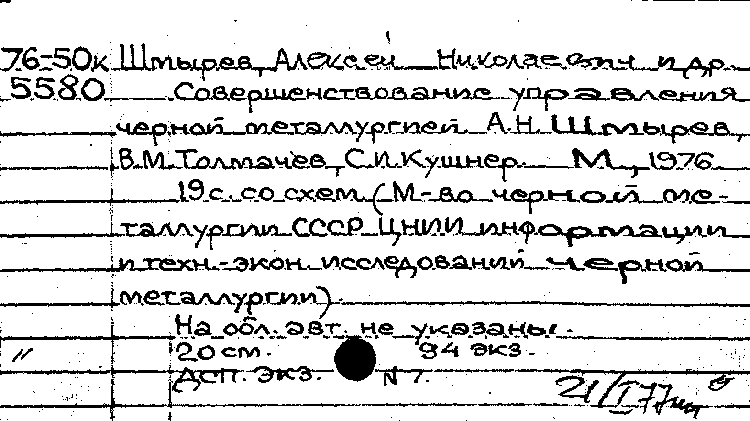 76-50к Шмырев, Алексей Николаевич и др.
5580 Совершенствование управления
черной металлургией. А.Н. Шмырев,
В.М. Толмачев, С.И. Кушнер. М., 1976
19 с. со схем. (М-во черной ме-
таллургии СССР. ЦНИИ информации
и техн.-экон. исследований черной
металлургии).
На обл. авт. не указаны.
" 20 см. 94 экз.
ДСП. экз. N 7.
21/I 77